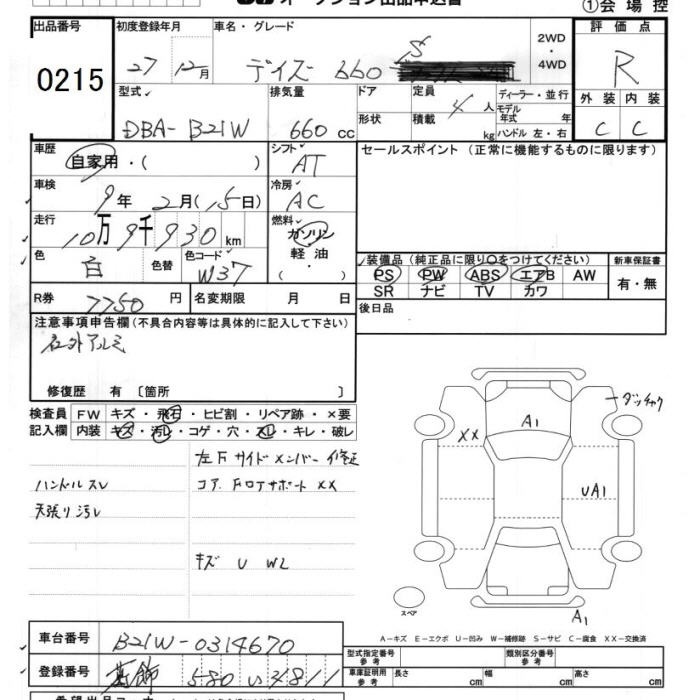 ①会 場 控
出品番号
0215
初度登録年月
27 12月
車名・グレード
デイズ 660 S
2WD
・
4WD
評 価 点
R
外 装 内 装
C C
型式
DBA- B21W
排気量
660 cc
ドア
形状
定員
4 人
積載
kg
ディーラー・並行
モデル
年式 年
ハンドル 左・右
車歴
自家用・( )
シフト
AT
セールスポイント (正常に機能するものに限ります)
車検
9年 2月(15日)
冷房
AC
走行
10万9千930km
燃料
ガソリン
軽 油
( ・ )
色
白
色替
色コード
W37
装備品(純正品に限り○をつけてください)
PS PW ABS エアB AW
SR ナビ TV カワ
新車保証書
有・無
R券
7750 円
名変期限 月 日
後日品
注意事項申告欄(不具合内容等は具体的に記入して下さい)
社外アルミ
修復歴 有 〔箇所 〕
検査員
記入欄
FW キズ・飛石・ヒビ割・リペア跡・×要
内装 キズ・汚レ・コゲ・穴・スレ・キレ・破レ
左F サイドメンバー 修正
ハンドルスレ
コア.FロアサポートXX
天張り汚レ
キズ U W2
XX
A1
UA1
スペア
A1
A-キズ E-エクボ U-凹み W-補修跡 S-サビ C-腐食 XX-交換済
車台番号
B21W-0314670
登録番号
580 い
型式指定番号
参 考
類別区分番号
参 考
車庫証明用
参 考
長さ cm
幅 cm
高さ cm